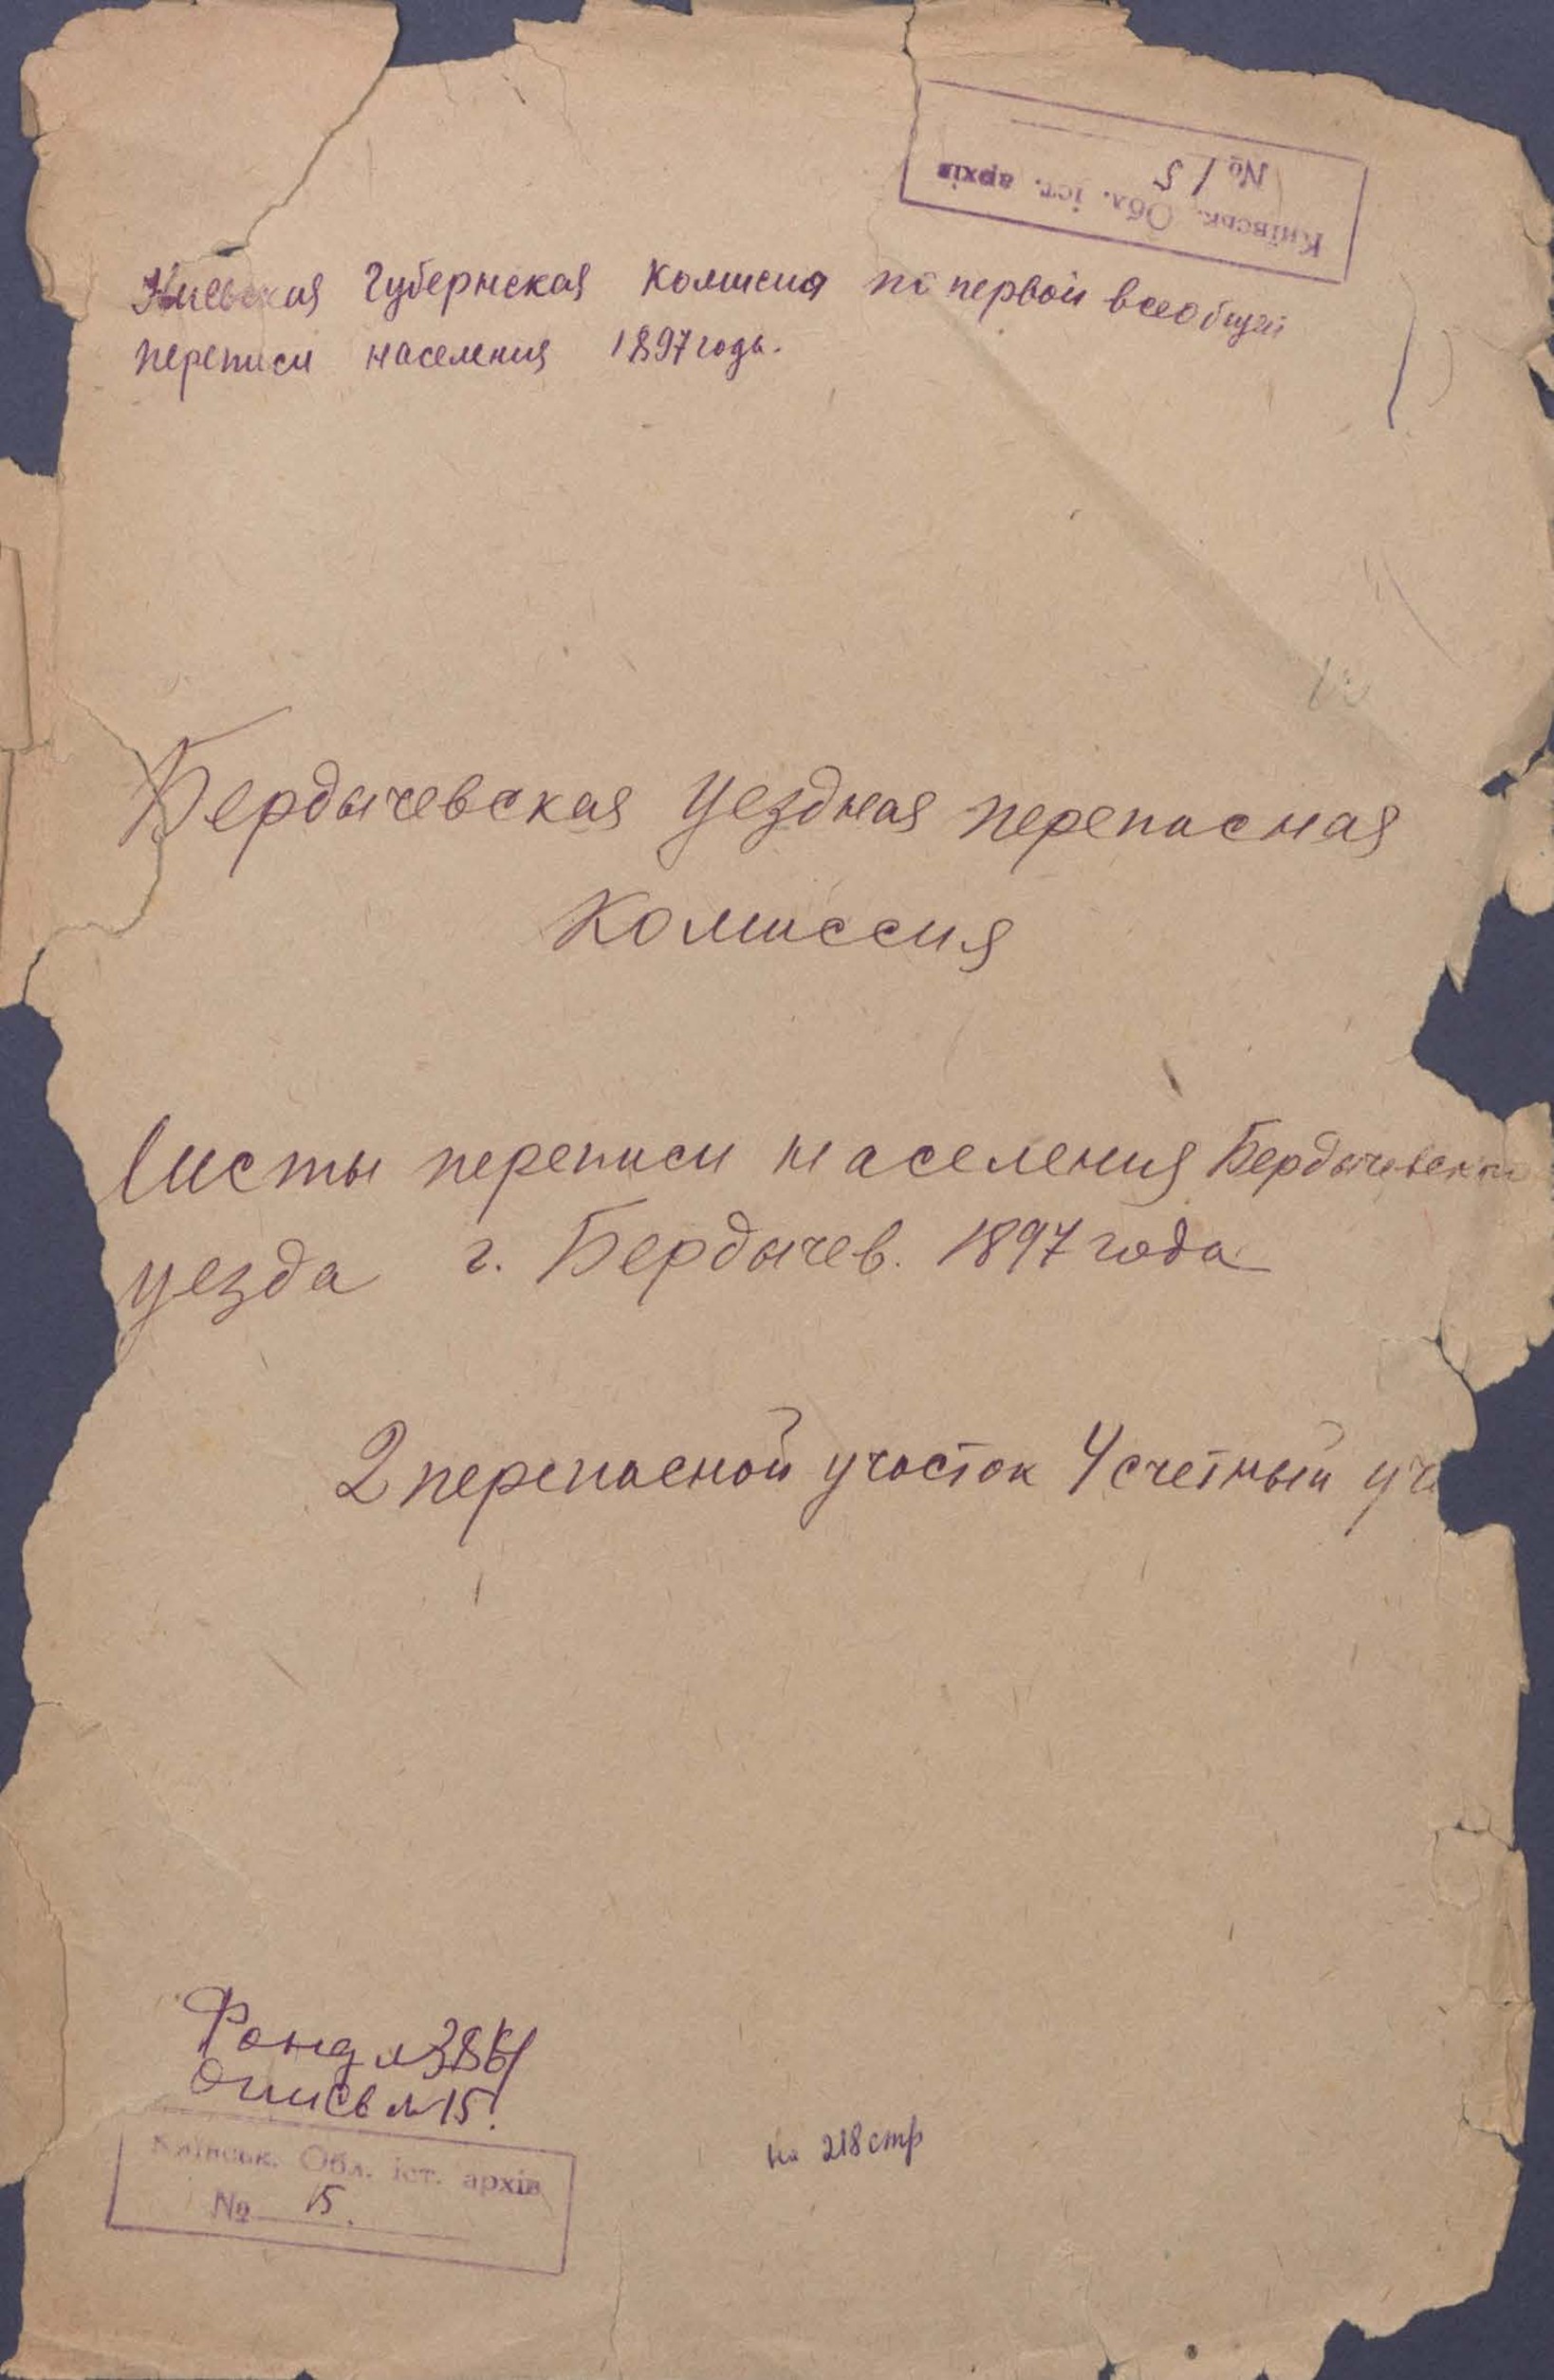 Київськ. Обл. іст. архів
№ 15
Киевская Губернская Комисия по первой всеобщей
переписи населения 1897 года.
Бердычевская уездная переписная
Комиссия
Листы переписи населения Бердычевского
уезда г. Бердычев. 1897 года
2 переписной участок 4 счетный уча
Фонд №
Опись № 15.
Київськ. Обл. іст. архів
№ 15.
на 218 стр